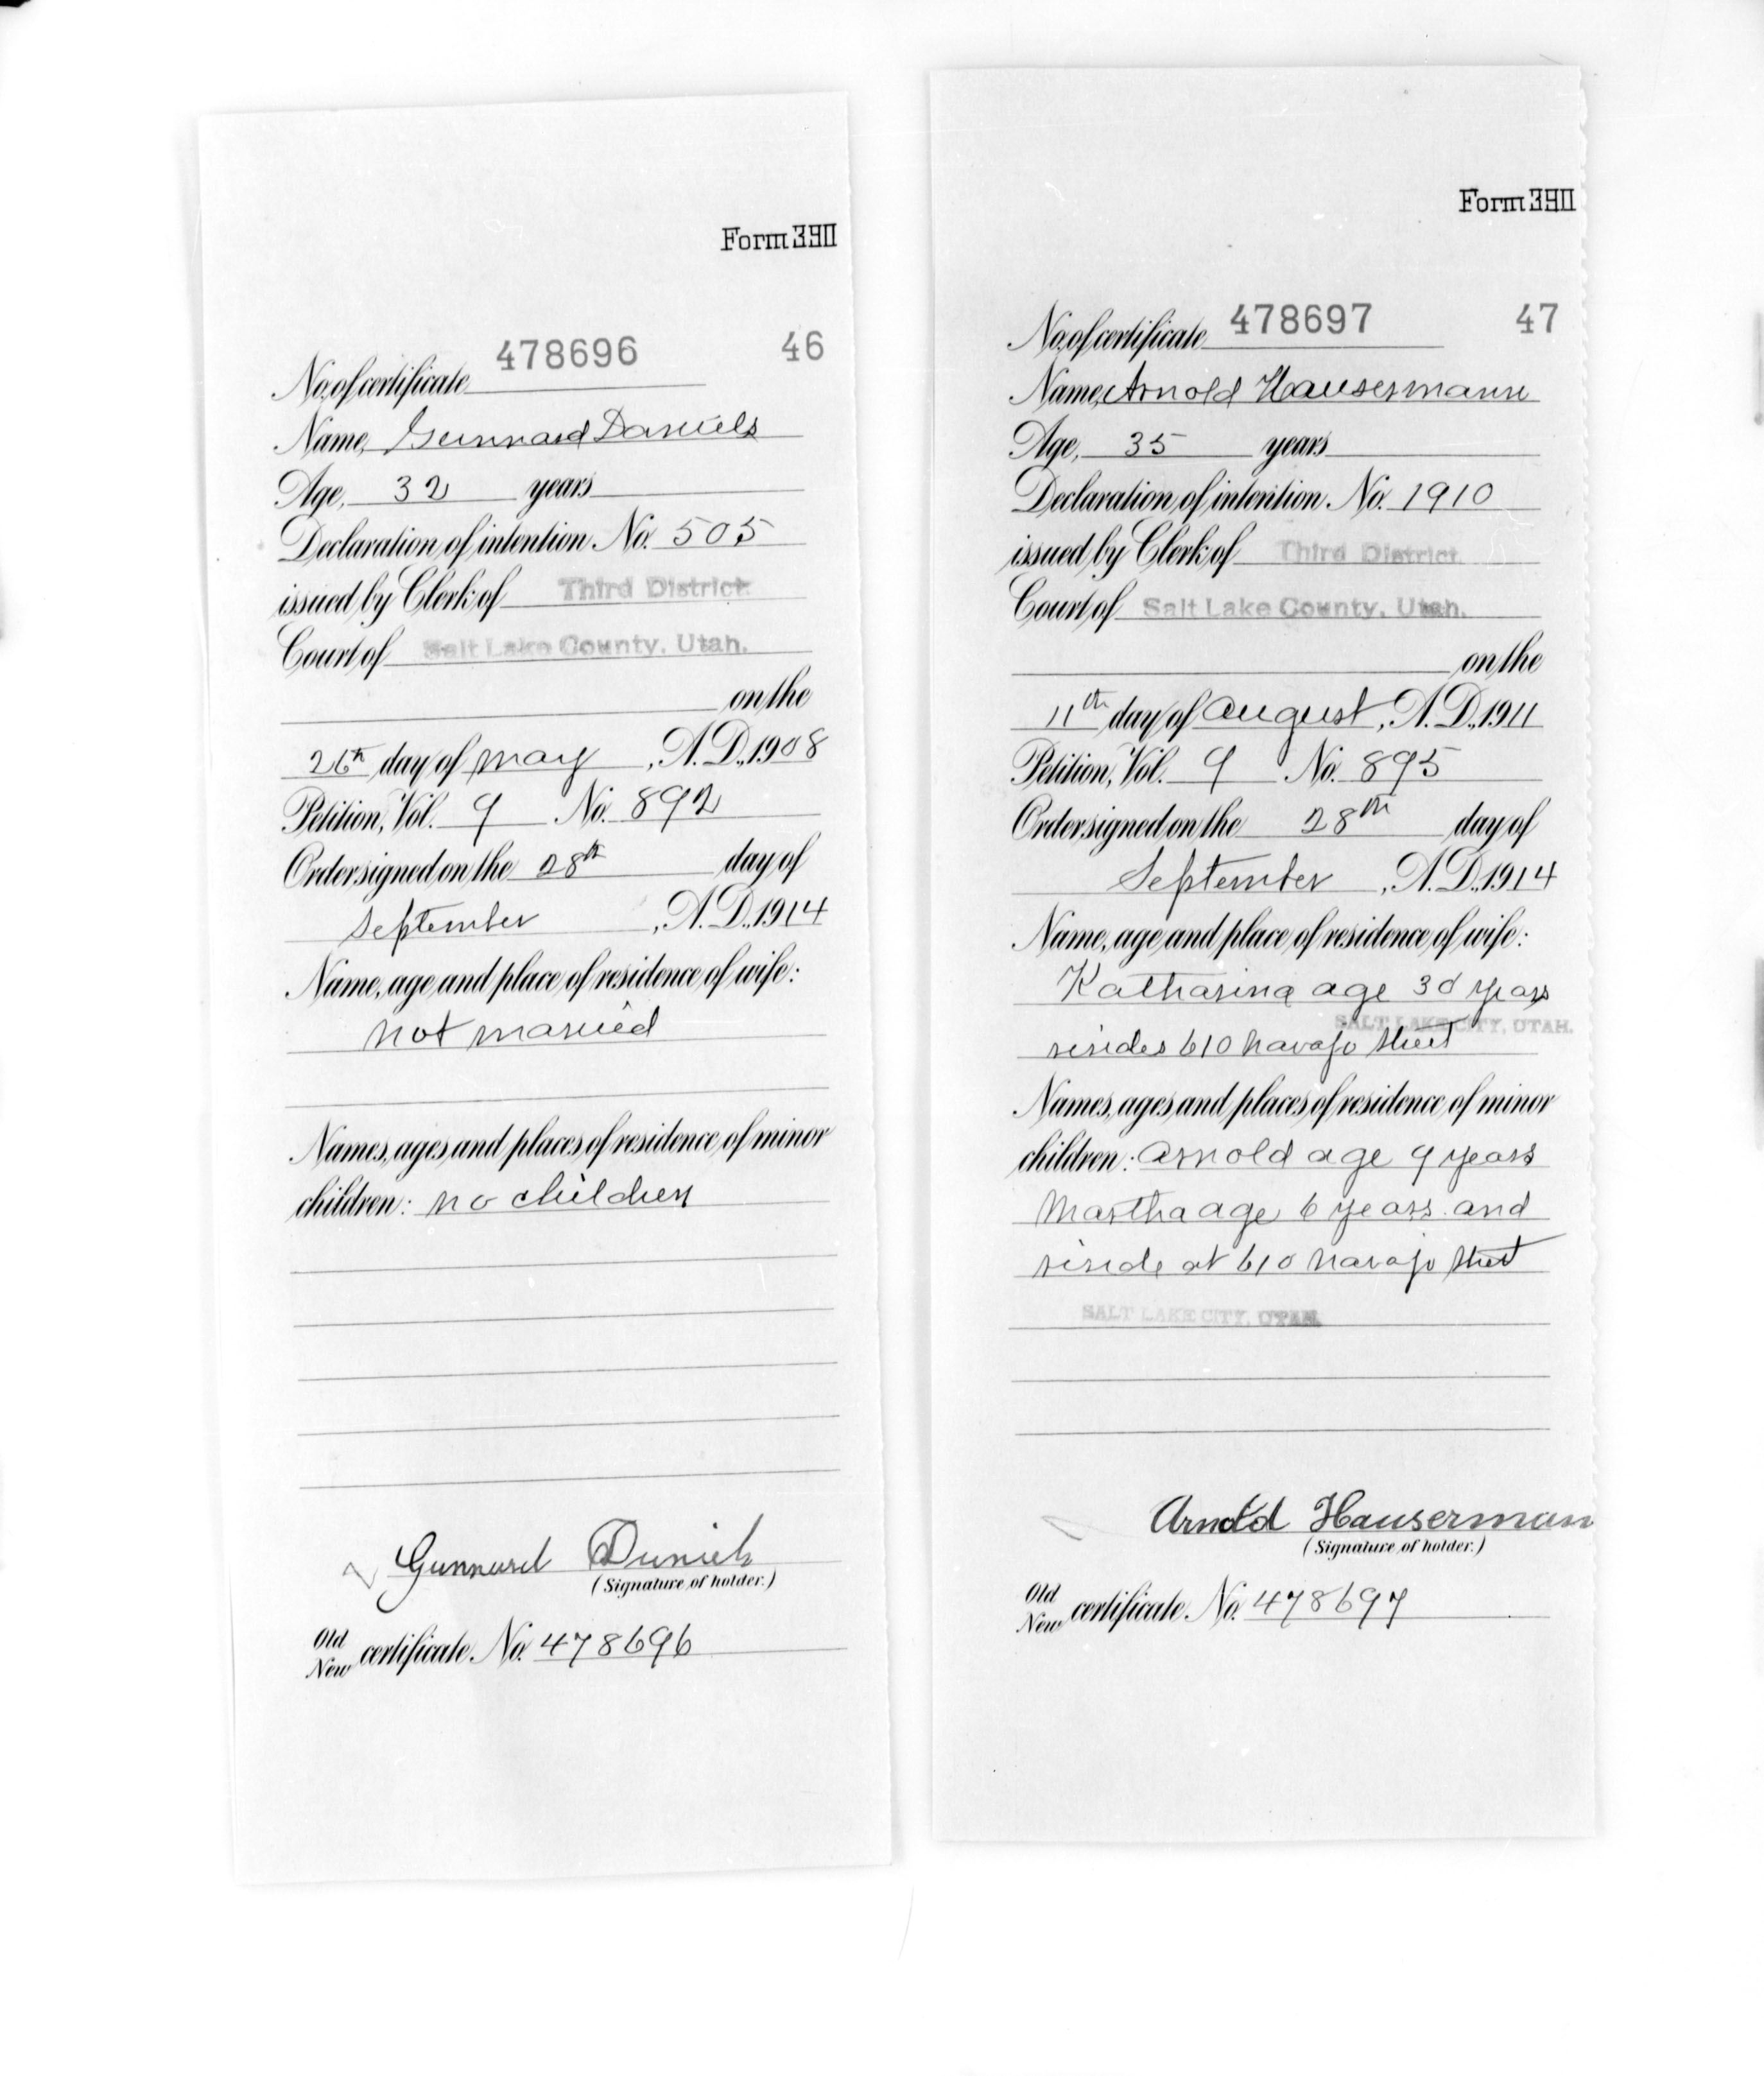 Form 390
No. of certificate 478696 46
Name, Gunnard Daniels
Age, 32 years
Declaration of intention No. 505
issued by Clerk of Third District
Court of Salt Lake County, Utah.
on the
26th day of May, A.D. 1908
Petition, Vol. 9 No. 892
Order signed on the 28th day of
September, A.D. 1914
Name, age and place of residence of wife:
not married
Names, ages and places of residence of minor
children: no children
Gunnard Daniels
(Signature of holder.)
Old
New certificate No. 478696
Form 390
No. of certificate 478697 47
Name, Arnold Hausermann
Age, 35 years
Declaration of intention No. 1910
issued by Clerk of Third District
Court of Salt Lake County, Utah.
on the
11th day of August, A.D. 1911
Petition, Vol. 9 No. 895
Order signed on the 28th day of
September, A.D. 1914
Name, age and place of residence of wife:
Katharina age years
SALT LAKE CITY, UTAH.
resides 610 Navajo Street
Names, ages and places of residence of minor
children: Arnold age 9 years
Martha age 6 years and
reside at 610 Navajo Street
SALT LAKE CITY, UTAH.
Arnold Hauserman
(Signature of holder.)
Old
New certificate No. 478697